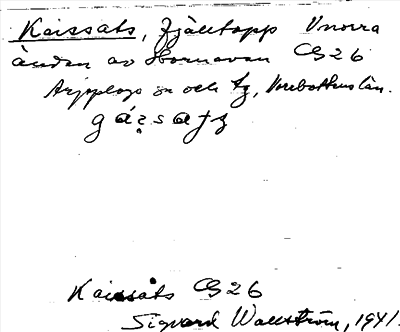 Kaissats, Fjälltopp V norra
änden av Hornavan CG26
Arjeplogs sn och tg, Norrbottens län.
gáʒsatʒ
Kaissåts CG26
Sigvard Wallström, 1941.